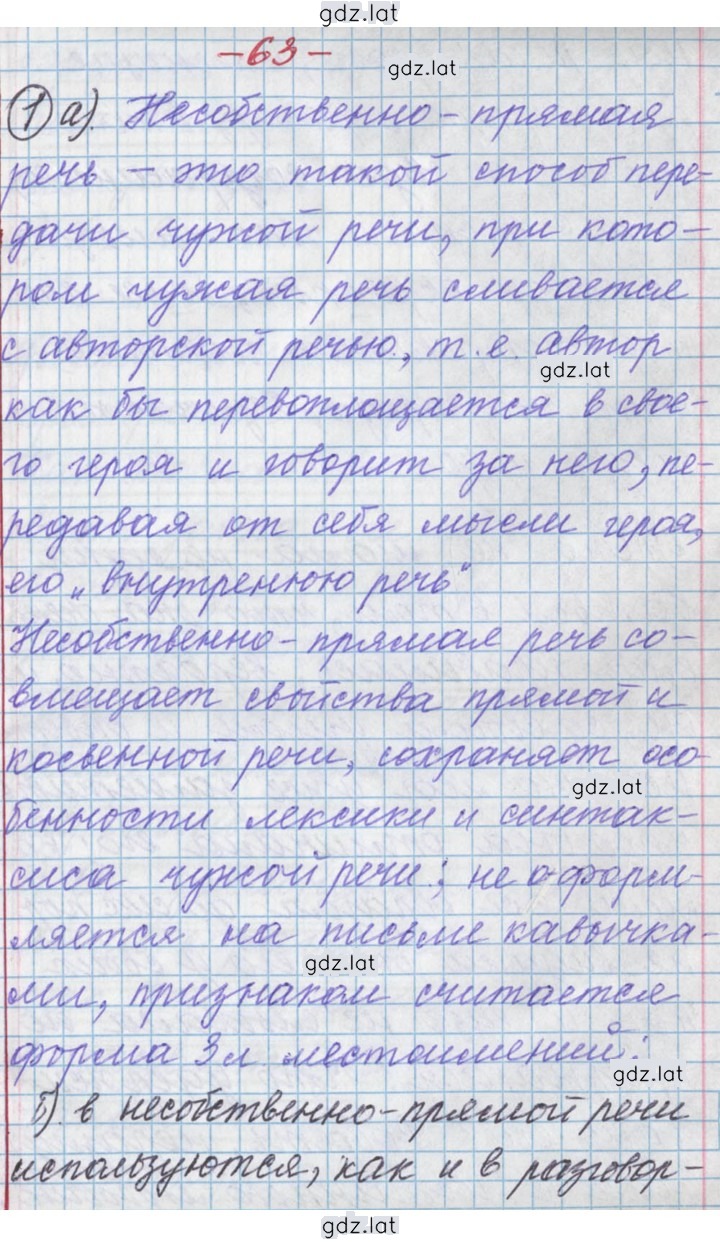 gdz.lat
-63-
gdz.lat
1 а). Несобственно-прямая
речь – это такой способ пере-
дачи чужой речи, при кото-
ром чужая речь сливается
с авторской речью, т.е. автор
gdz.lat
как бы перевоплощается в свое-
го героя и говорит за него, пе-
редавая от себя мысли героя,
его „внутренюю речь"
Несобственно-прямая речь со-
вмещает свойства прямой и
косвенной речи, сохраняет осо-
gdz.lat
бенности лексики и синтак-
сиса чужой речи; не оформ-
ляется на письме кавычка-
gdz.lat
ми, признаком считается
форма 3 л местоимений:
gdz.lat
б) в несобственно-прямой речи
используются, как и в разговор-
gdz.lat